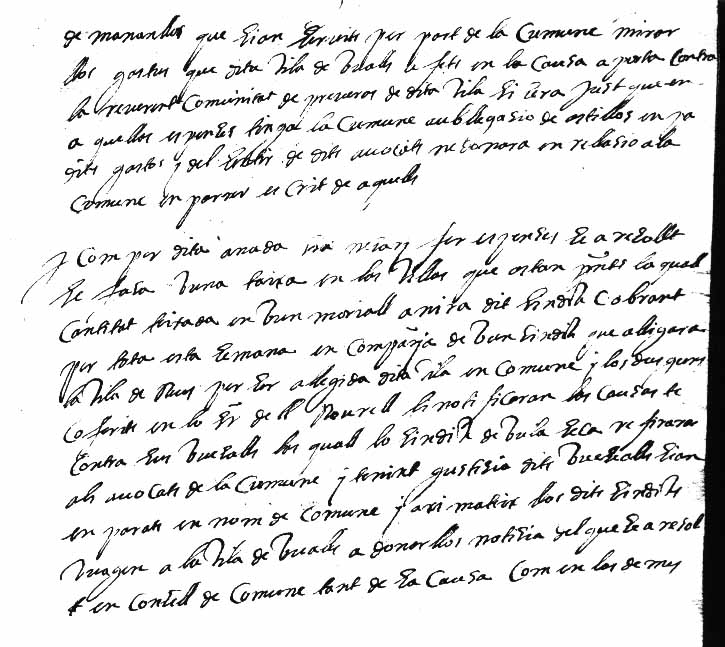 de manarllos que sian servits per part de la Comune mirar
llos gastos que dita vila de vualls a fets en la Causa a porta Contra
la reverent Comunitat de preveres de dita vila si sera just que en
a quellas espenses tinga la Comune aubligasio de asistillos en pa
dits gastos y del sentir de dits avocats ne tonara en relasio a la
Comune en portar es Crit de aquells
Com per dita anada sia fer espenses se a resolt
se fasa vuna taixa en las villas que astan pnts la quall
Cantitat tirada en vun moriall anira dit sindich Cobrant
per tota esta semana en Compañia de vun sindich que alligara
la vila de Reus per ser allegida dita vila en Comune y los dos quens
Conferits en lo de Rourell li notificaran las Causas te
Contra sos vuesalls los quall lo sindich de vila seca ne firara
als avocats de la Comune y tenint gustisia dits vuesalls sian
en parats en nom de Comune y axi mateix los dits sindichs
vuagen a la vila de vualls a donarllos notisia del que se a resol
t en Consell de Comune tant de sa Causa Com en las demes